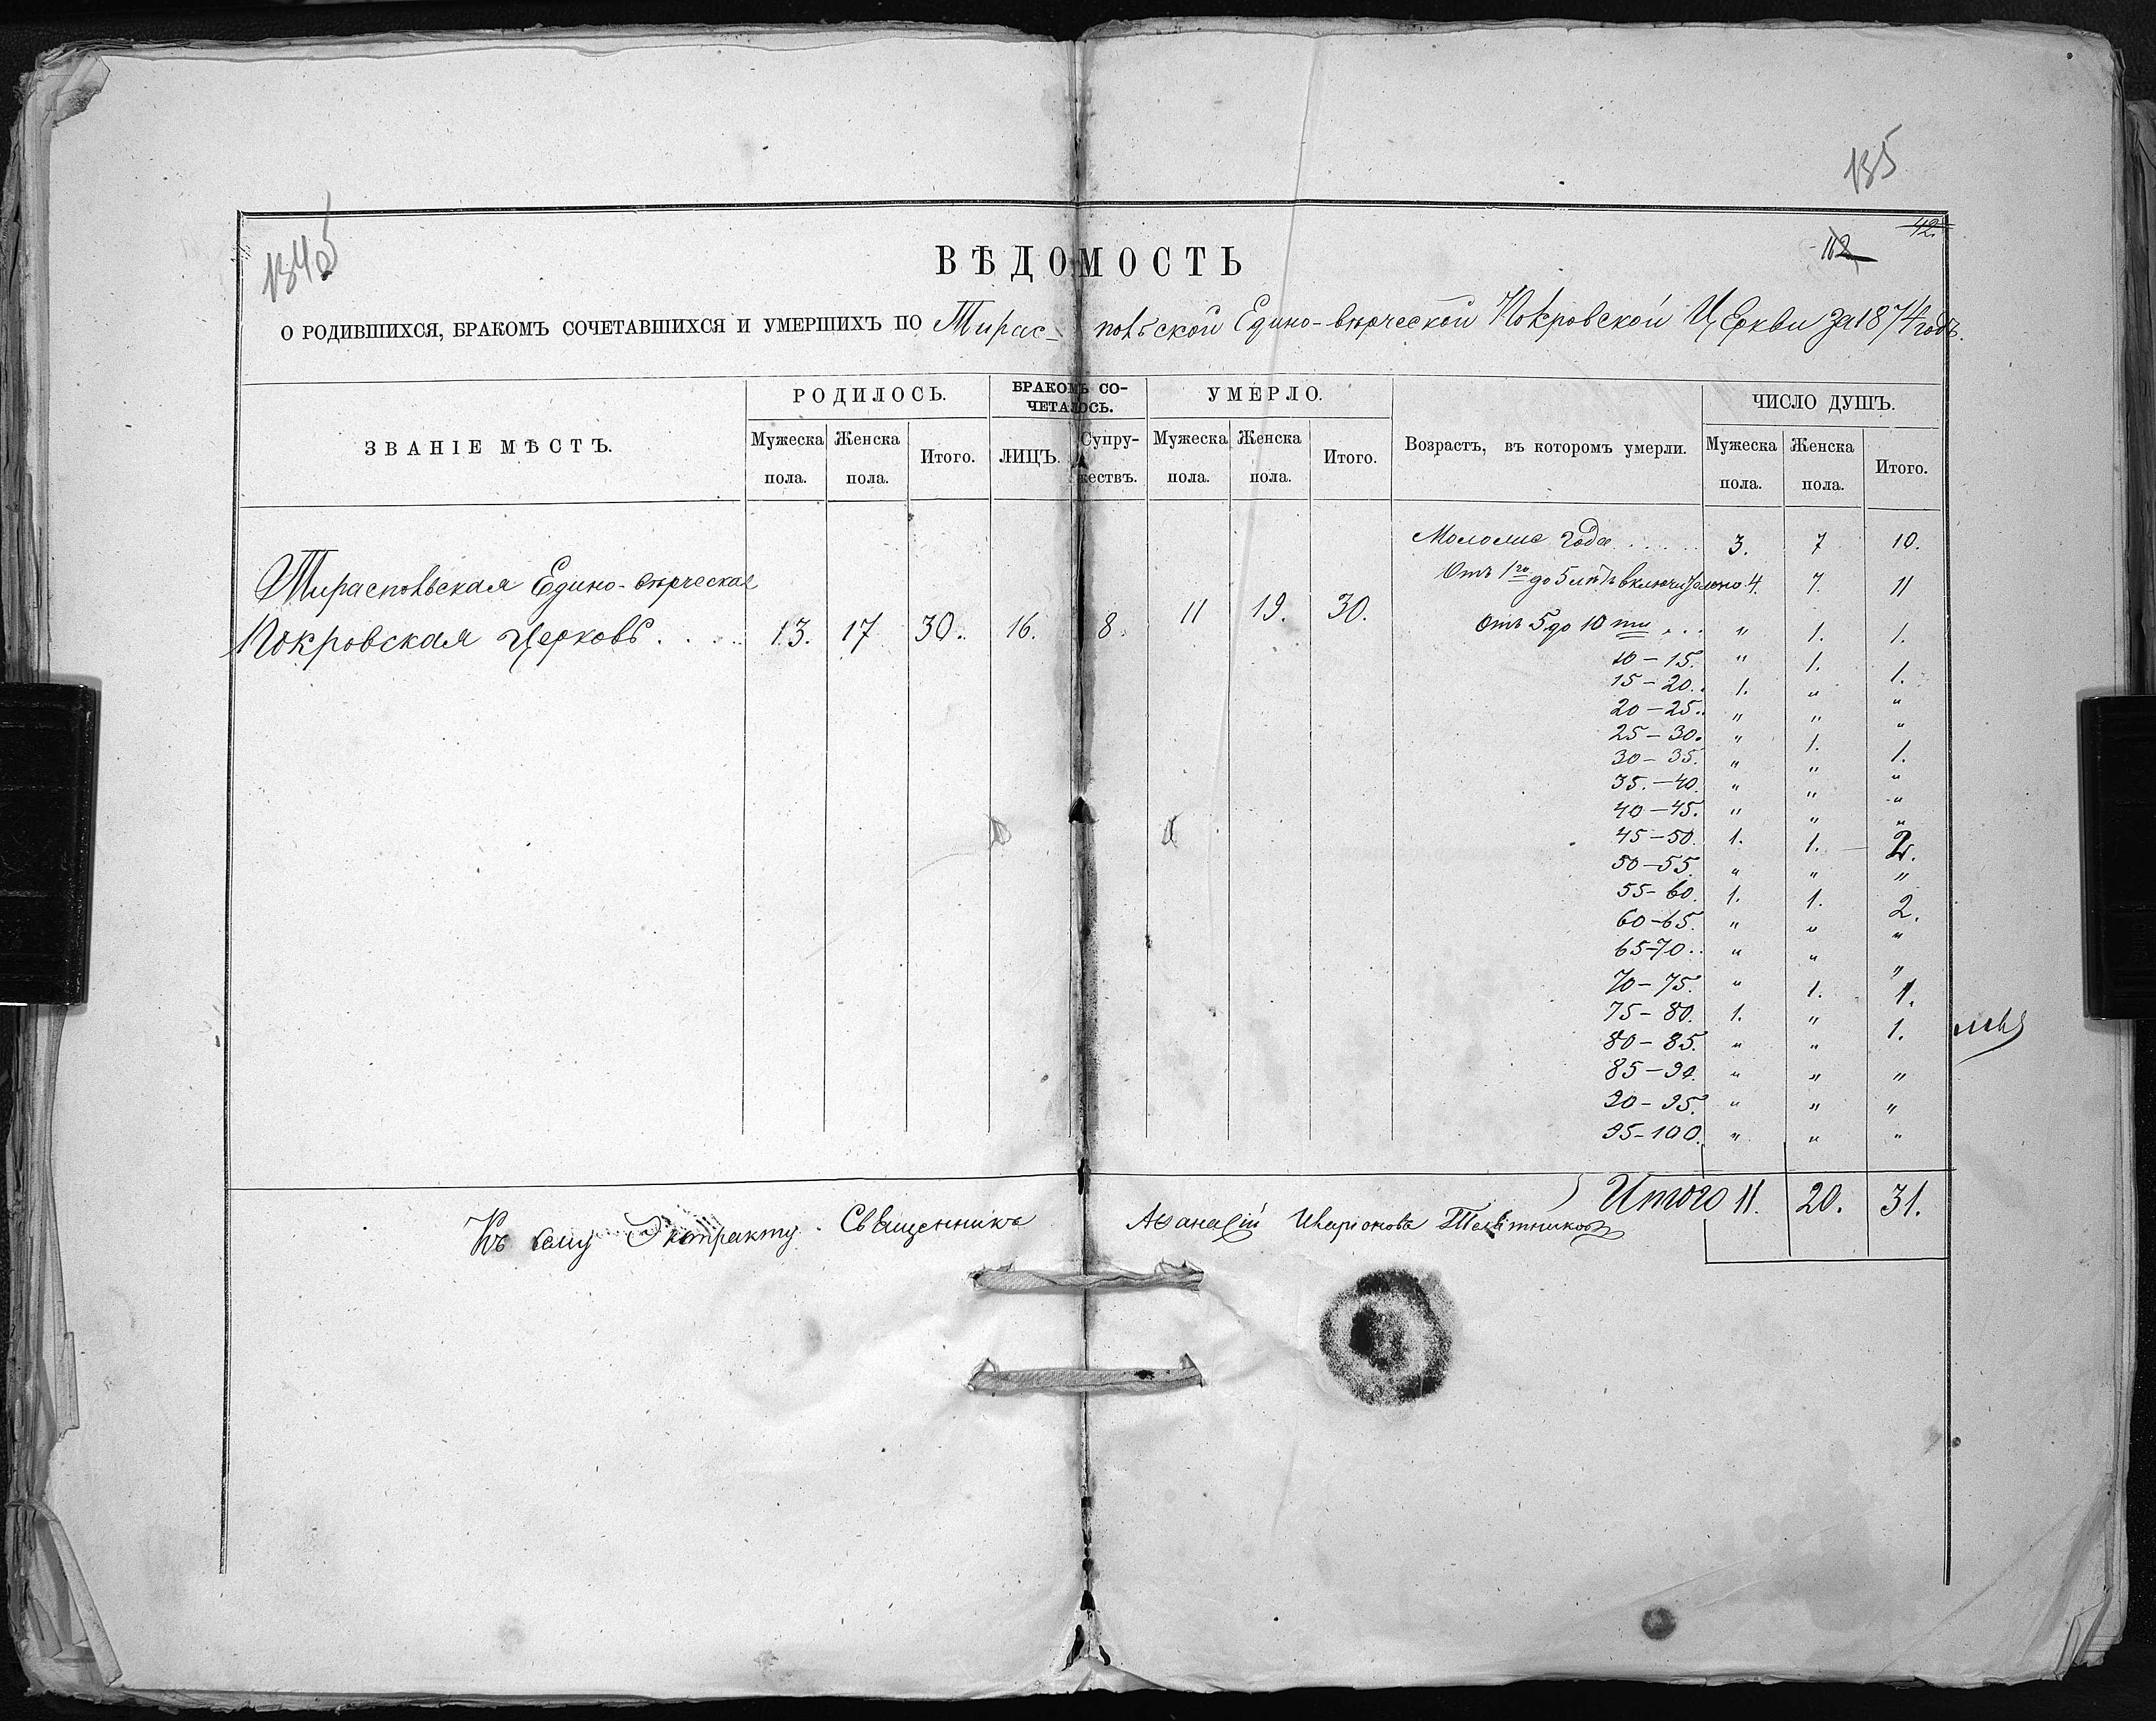 135
1340
42.
112
ВѢДОМОСТЬ
О РОДИВШИХСЯ, БРАКОМЪ СОЧЕТАВШИХСЯ И УМЕРШИХЪ ПО Тирас- польской Едино-вѣрческой Покровской Церкви за 1874 годъ.
ЗВАНІЕ МѢСТЪ. РОДИЛОСЬ. БРАКОМЪ СО-ЧЕТАЛОСЬ. УМЕРЛО. Возрастъ, въ которомъ умерли. ЧИСЛО ДУШЪ.
Мужеска пола. Женска пола. Итого. ЛИЦЪ. Супру-жествъ. Мужеска пола. Женска пола. Итого. Мужеска пола. Женска пола. Итого.
Тираспольская Едино-вѣрческая
Покровская Церковь . . . . 13. 17 30. 16. 8. 11 19. 30.
Моложе года . . . . . . 3. 7 10.
Отъ 1го до 5 лѣтъ включительно 4. 7. 11
Отъ 5 до 10 ти . . . " 1. 1.
10-15. " 1. 1.
15-20. 1. " "
20-25. " " "
25-30. " 1. 1.
30-35. " " "
35.-40. " " "
40-45. " " "
45-50. 1. 1. 2.
50-55. " " "
55-60. 1. 1. 2.
60-65. " " "
65-70. " " "
70-75. " 1. 1.
75-80. 1. " 1.
80-85. " "
85-90. " " "
90-95. " " "
95-100. " " "
Итого 11. 20. 31.
Къ сему Экстракту Священникъ Афанасій Иларіоновъ